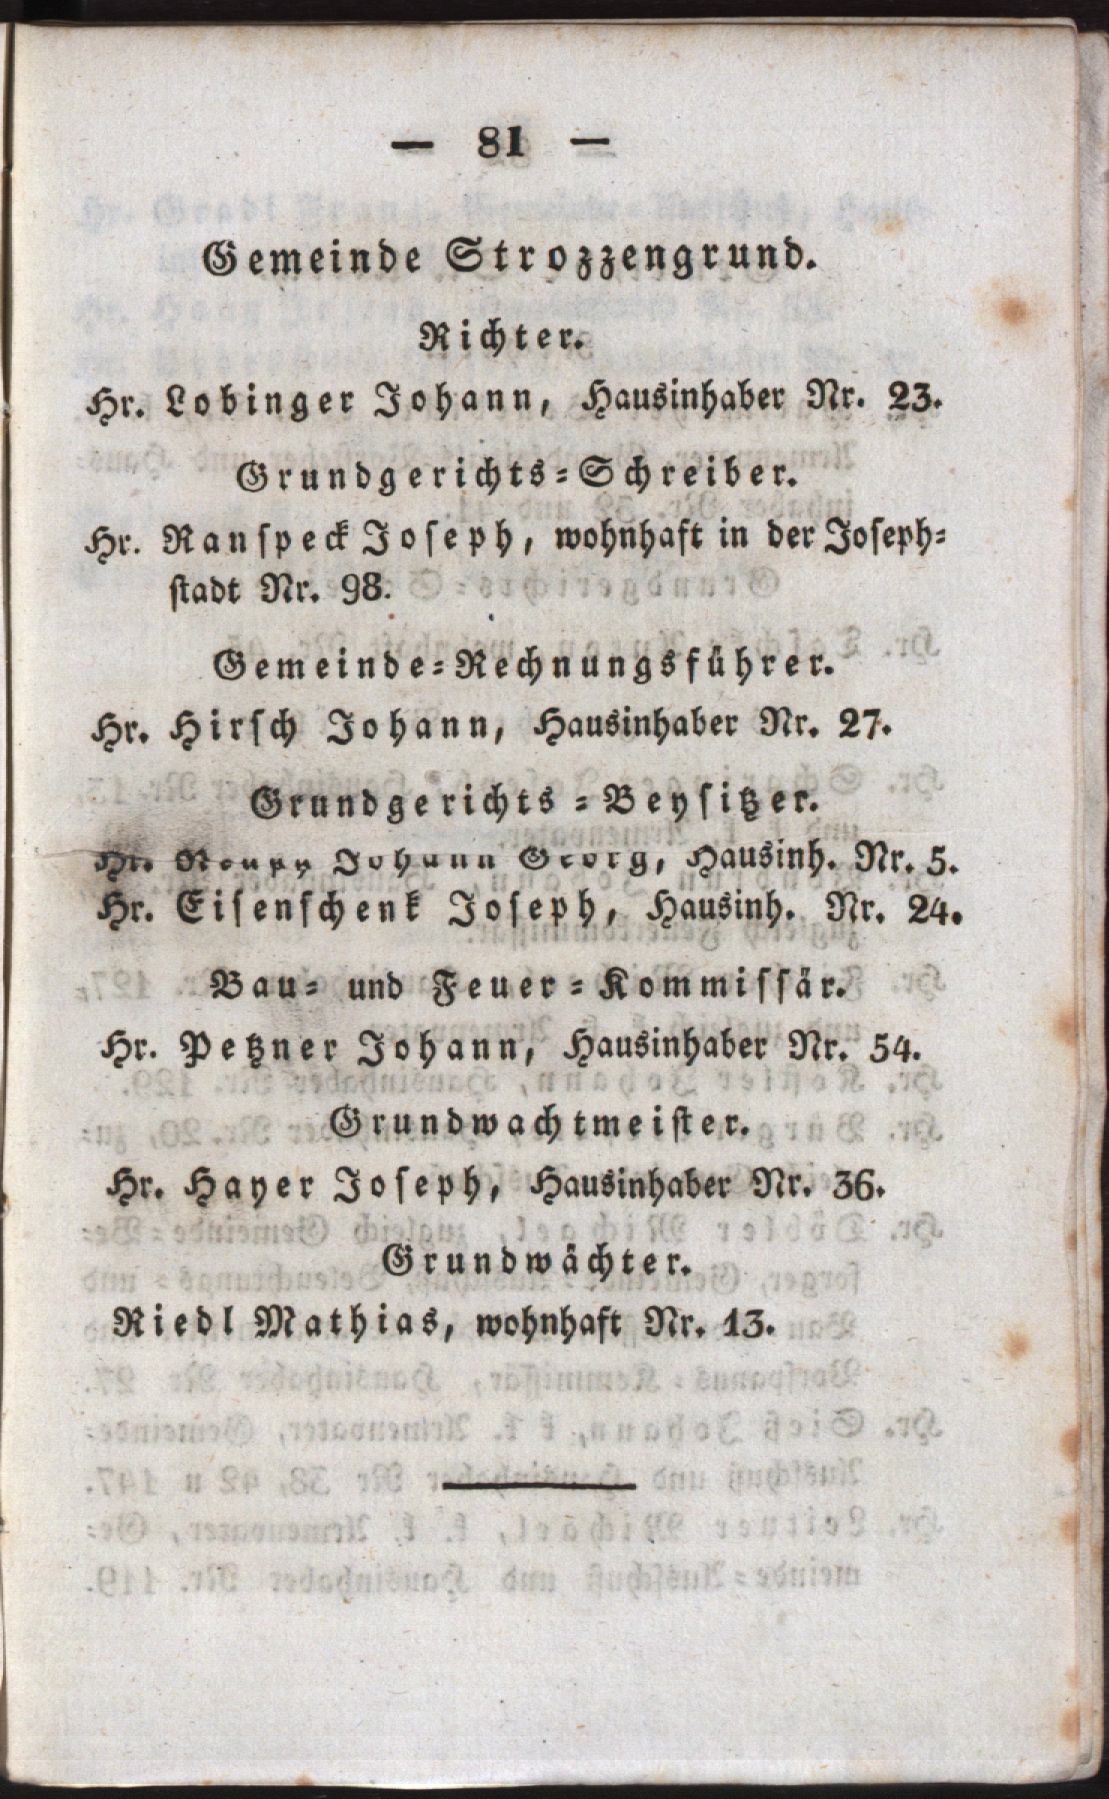 — 81 —
Gemeinde Strozzengrund.
Richter.
Hr. Lobinger Johann, Hausinhaber Nr. 23.
Grundgerichts-Schreiber.
Hr. Ranspeck Joseph, wohnhaft in der Joseph-
stadt Nr. 98.
Gemeinde-Rechnungsführer.
Hr. Hirsch Johann, Hausinhaber Nr. 27.
Grundgerichts-Beysitzer.
Hr. Johann Georg, Hausinh. Nr. 5.
Hr. Eisenschenk Joseph, Hausinh. Nr. 24.
Bau- und Feuer-Kommissär.
Hr. Petzner Johann, Hausinhaber Nr. 54.
Grundwachtmeister.
Hr. Hayer Joseph, Hausinhaber Nr. 36.
Grundwächter.
Riedl Mathias, wohnhaft Nr. 13.